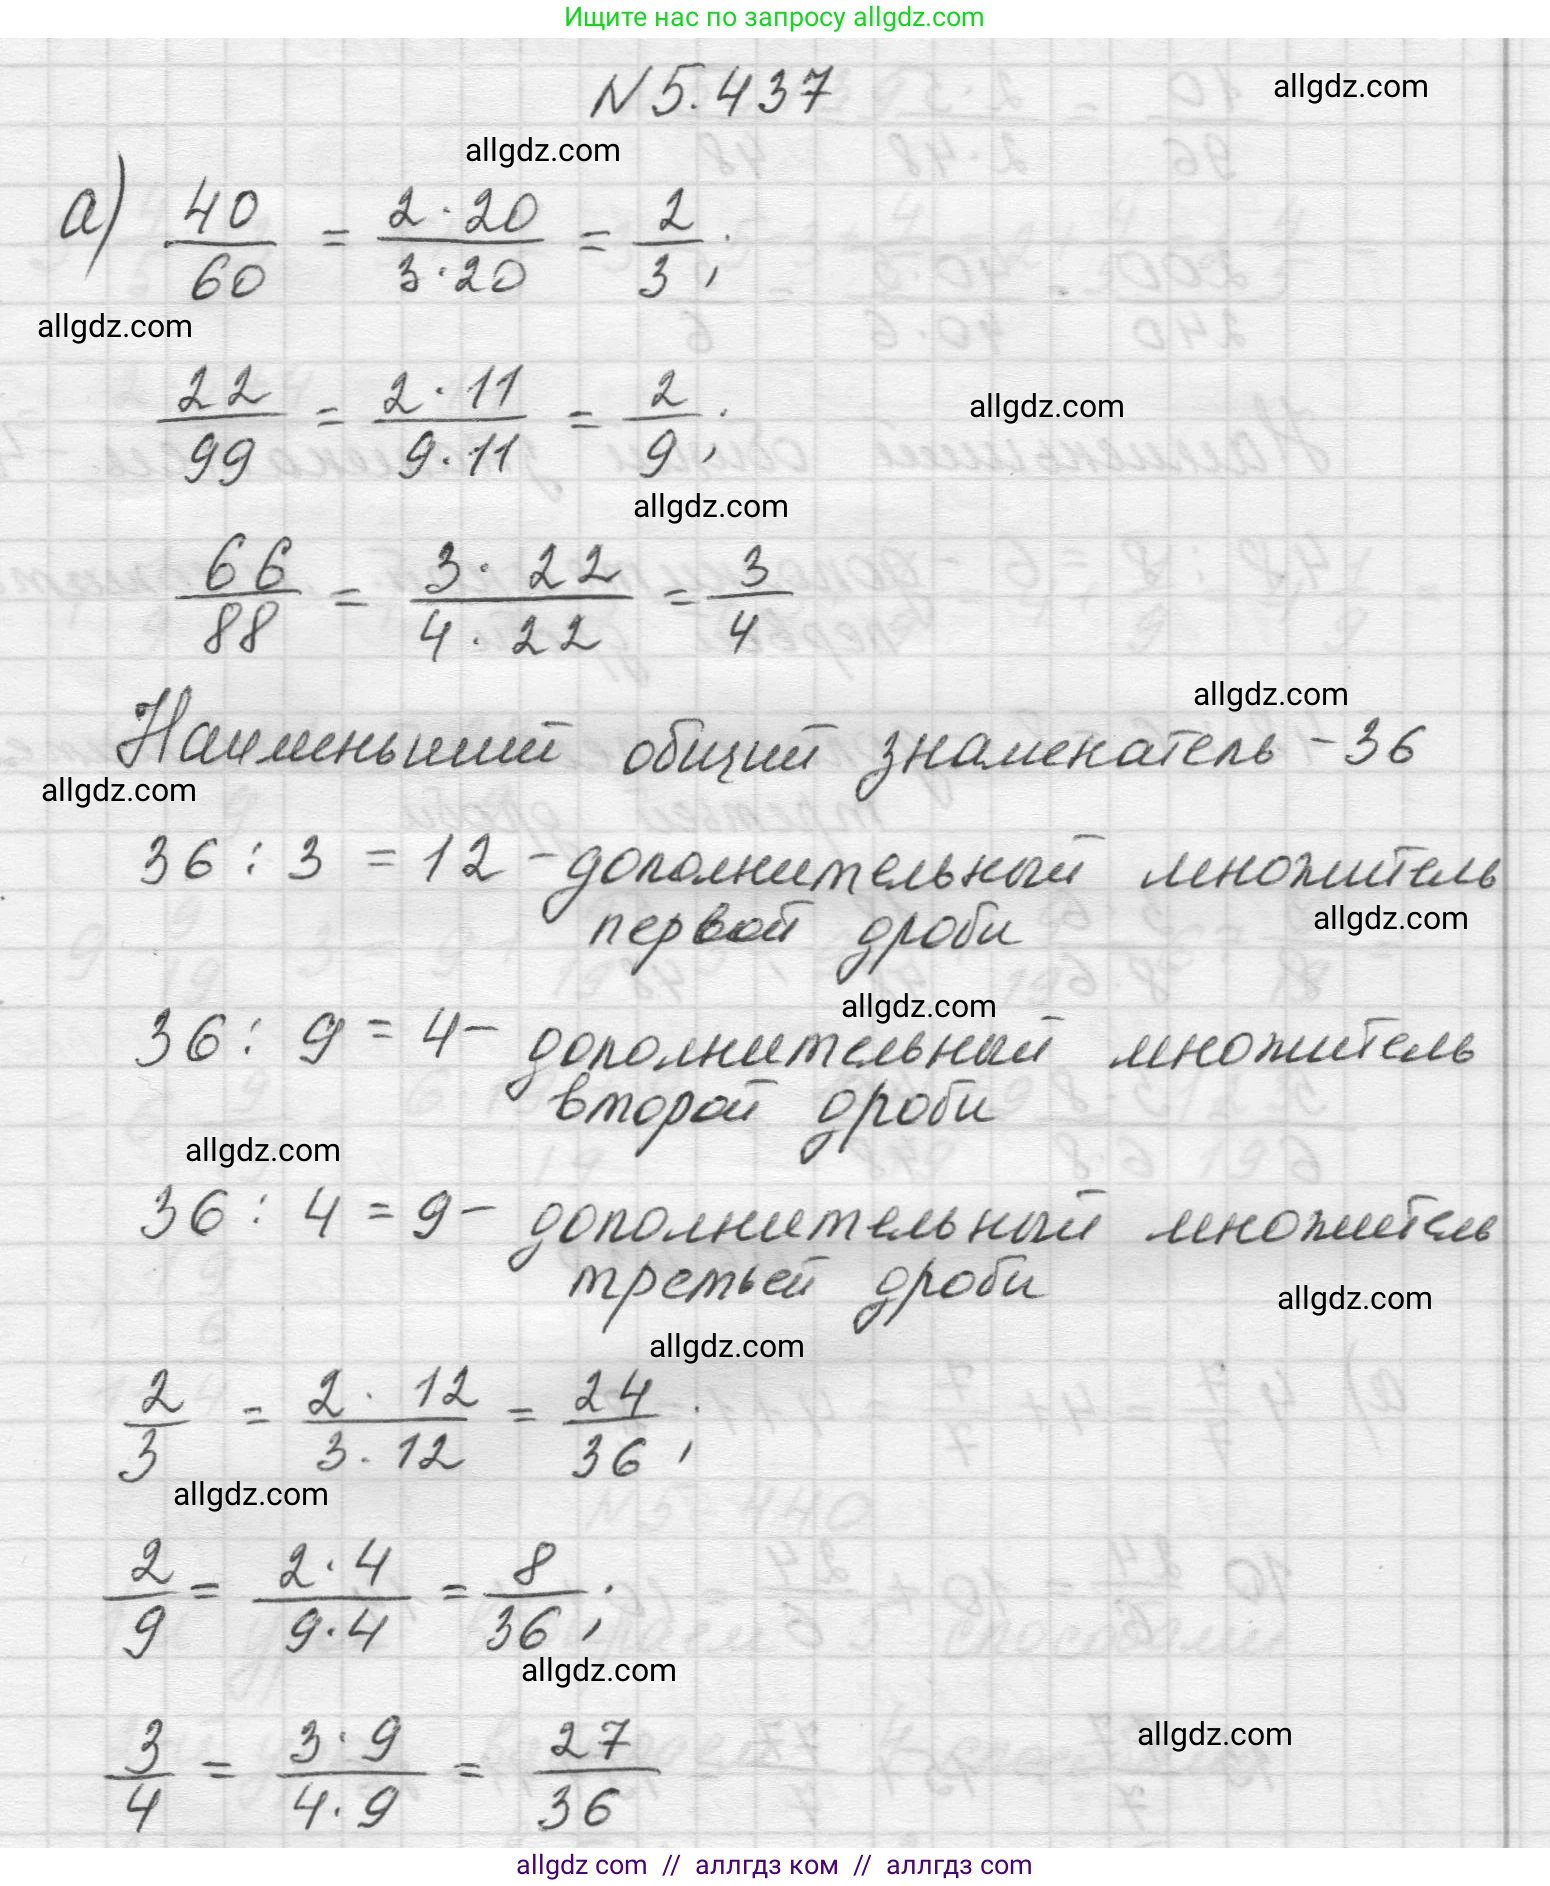 Ищите нас по запросу allgdz.com
N 5.437
allgdz.com
allgdz.com
а) 40/60 = 2·20/3·20 = 2/3;
allgdz.com
22/99 = 2·11/9·11 = 2/9;
allgdz.com
allgdz.com
66/88 = 3·22/4·22 = 3/4
allgdz.com
Наименьший общий знаменатель - 36
allgdz.com
36 : 3 = 12 - дополнительный множитель
первой дроби
allgdz.com
allgdz.com
36 : 9 = 4 - дополнительный множитель
второй дроби
allgdz.com
36 : 4 = 9 - дополнительный множитель
третьей дроби
allgdz.com
allgdz.com
2/3 = 2·12/3·12 = 24/36;
allgdz.com
2/9 = 2·4/9·4 = 8/36;
allgdz.com
allgdz.com
3/4 = 3·9/4·9 = 27/36
allgdz com // аллгдз ком // аллгдз com